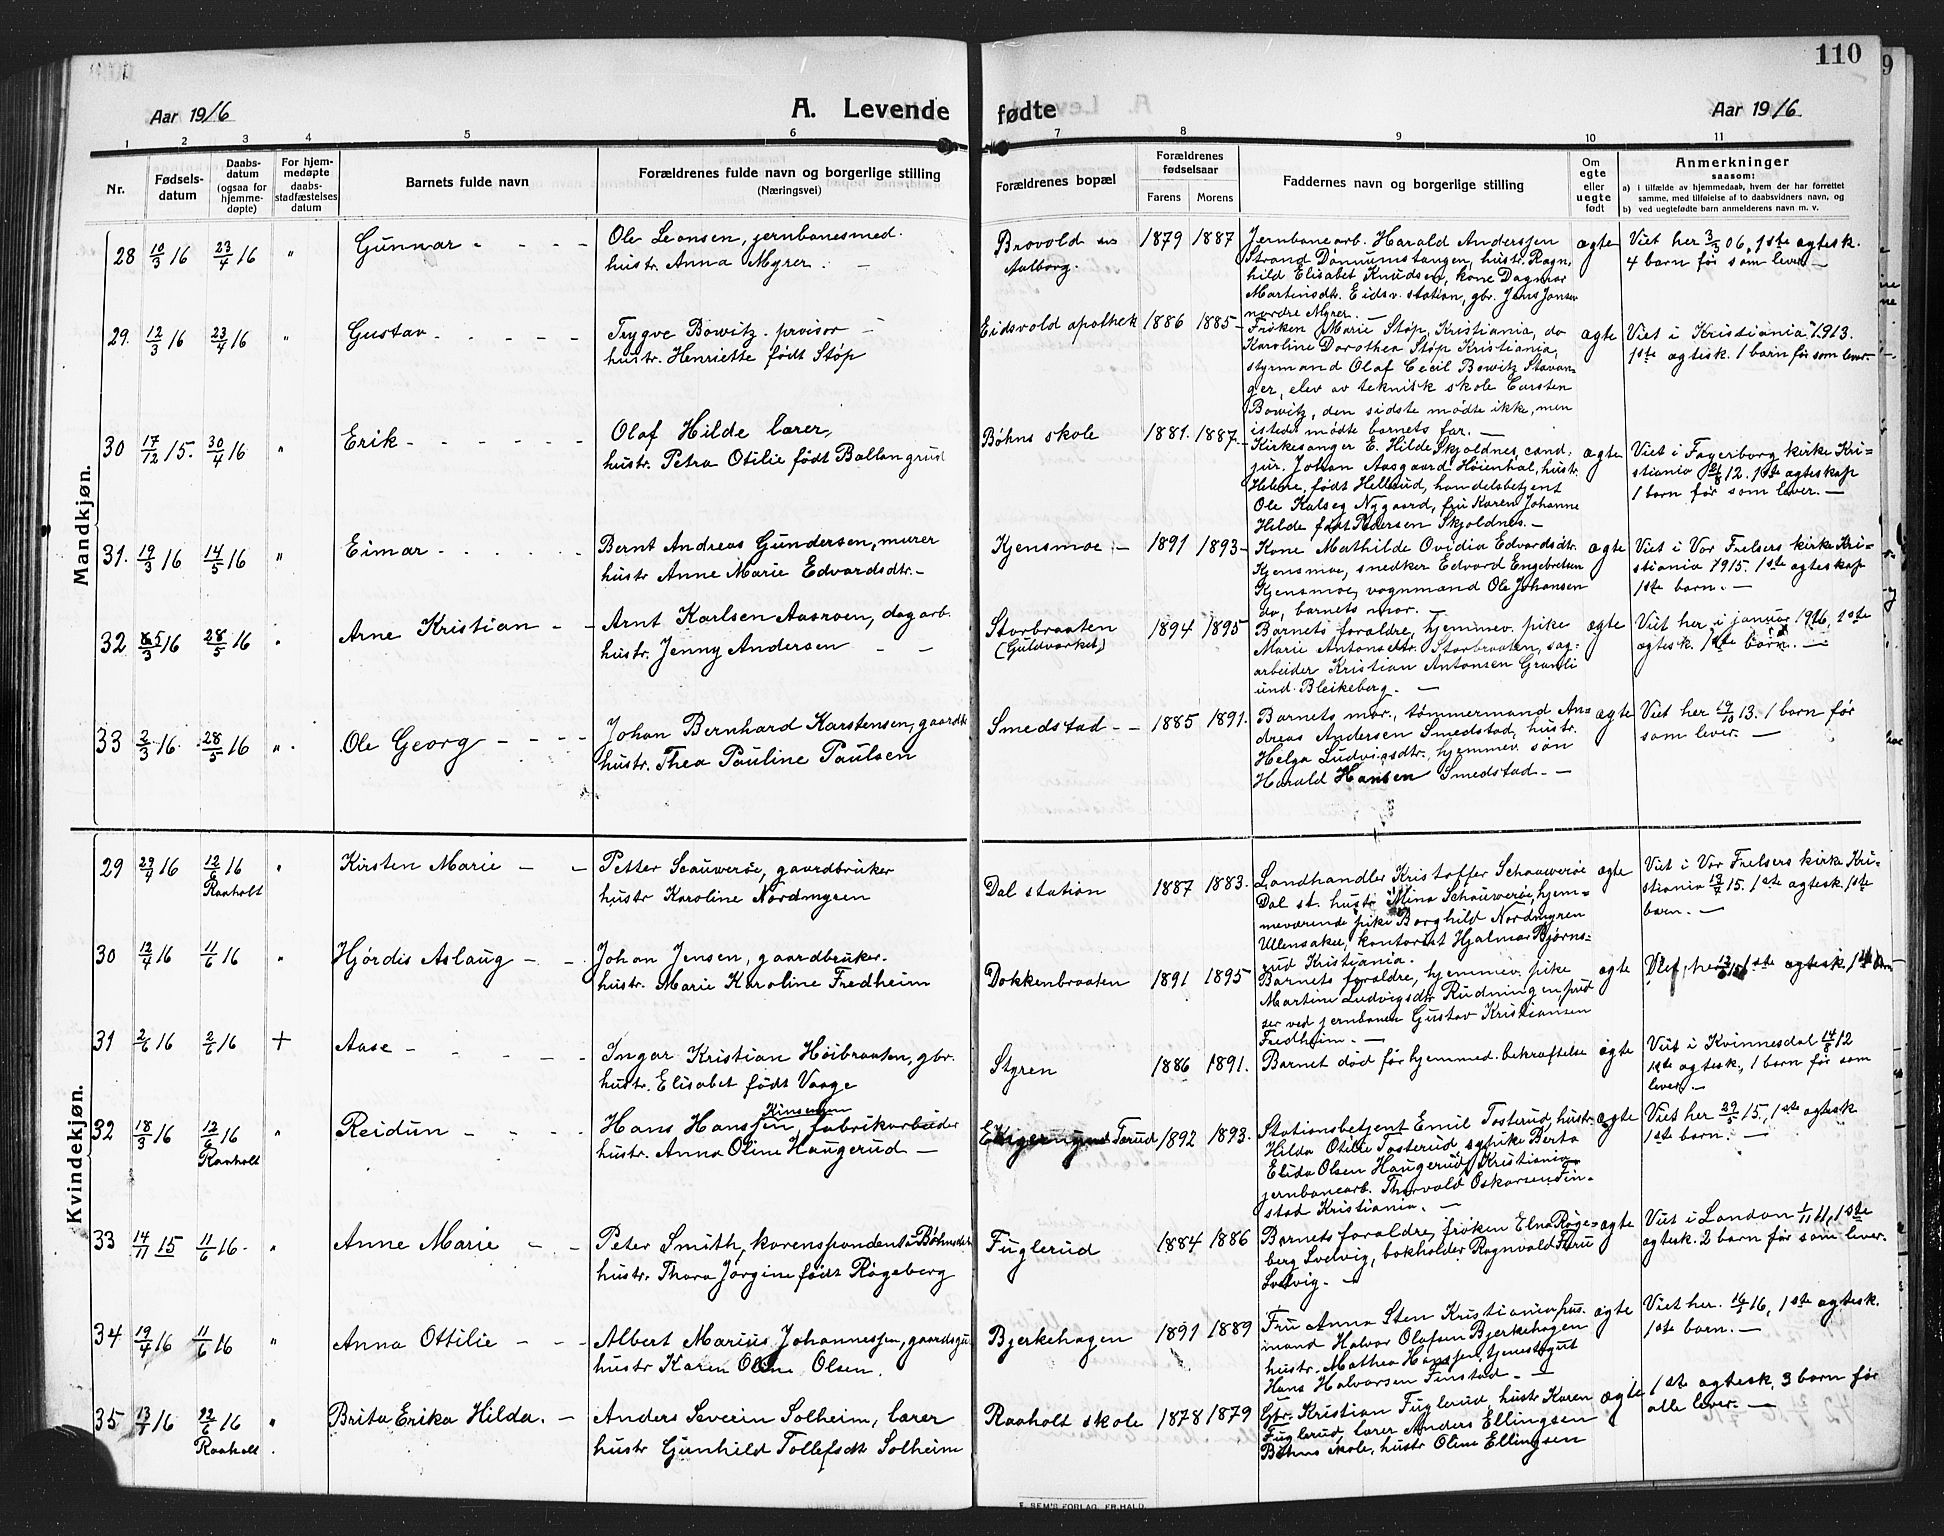 110
Aar 1916
A. Levende fødte
Aar 1916
1 2 3 4 5 6 7 8 9 10 11
Nr.
Fødsels-
datum
Daabs-
datum
(ogsaa for
hjemme-
døpte)
For hjem-
medøpte
daabs-
stadfæstelses
datum
Barnets fulde navn
Forældrenes fulde navn og borgerlige stilling
(Næringsvei)
Forældrenes bopæl
Forældrenes
fødselsaar
Farens Morens
Faddernes navn og borgerlige stilling
Om
egte
eller
uegte
født
Anmerkninger
saasom:
a) i tilfælde av hjemmedaab, hvem der har forrettet
samme, med tilføielse af to daabsvidners navn, og
b) ved uegtefødte barn anmelderens navn m. v.
Mandkjøn.
28 10/3 16 23/4 16 " Gunnar
Ole Leonsen, jernbanesmed.
hustr. Anna Myrer.
Brovold
Aalborg.
1879 1887
Jernbanearb. Harald Anderssen
Strand Dönnumstangen, hustr. Ragn
hild Elisabet Knudsen, kone Dagmar
Martinsdtr. Eidsv. station, gbr. Jens Jonsen
nordre Myrer. —
ægte
Viet her 3/3 06, 1ste ægtesk.
4 barn før som lever —
29. 12/3 16 23/4 16 " Gustav
Trygve Bowitz. provisor —
hustr. Henriette født Støp
Eidsvold apothek 1886 1885
Frøken Marie Støp, Kristiania, do
Karoline Dorothea Støp Kristiania,
styrmand Olaf Cecil Bowitz Stavan-
ger, elev av teknisk skole Carsten
Bowitz, den sidste mødte ikke, men
istedt mødte barnets far. —
ægte
Viet i Kristiania 1913.
1ste ægtesk. 1 barn før som lever
30 17/12 15. 30/4 16 " Erik
Olaf Hilde lærer,
hustr. Petra Otilie født Ballangrud
Bøhns skole 1881. 1887.
Kirkesanger E. Hilde Skjoldnes, cand.
jur. Johan Aasgaard Høienhal, hustr.
Helene, født Hellerud, handelsbetjent
Ole Kalseg Nygaard, fru Karen Johanne
Hilde født Pedersen Skjoldnes. —
ægte
Viet i Fagerborg kirke Kri-
stiania 12. 1ste ægteskap
1 barn før som lever. —
31. 19/3 16 14/5 16 " Eimar
Bernt Andreas Gundersen, murer
hustr Anne Marie Edvardsdtr. —
Kjensmoe — 1891 1893
Kone Mathilde Ovidia Edvardsdtr.
Kjensmoe, snedker Edvard Engebretsen
Kjensmoe, vognmand Ole Johansen
do, barnets mor.
ægte
Viet i Vor Frelsers kirke Kri-
stiania 1915. 1ste ægteskap
1ste barn. —
32 /3 16 28/5 16 " Arne Kristian
Arnt Karlsen Aasroen, dagarb.
hustr. Jenny Andersen
Storbraaten
(Guldværket)
1894 1895
Barnets forældre, hjemmev. pike
Marie Antonsdtr. Storbraaten, sag-
arbeider Kristian Antonsen Granli
und. Bleikeberg. —
ægte
Viet her i januar 1916, 1ste
ægtesk. 1ste barn. —
33 2/3 16. 28/5 16 " Ole Georg
Johan Bernhard Karstensen, gaardbr
hustr. Thea Pauline Paulsen
Smedstad 1885 1891.
Barnets mor, tømmermand An-
dreas Andersen Smedstad, hustr.
Helga Ludvigsdtr, hjemmev. søn
Harald Hansen Smedstad. —
ægte
Viet her 19/10 13. 1 barn før
som lever. —
Kvindekjøn.
29 29/4 16 12/6 16 Raaholt " Kirsten Marie
Petter Scauwerøe, gaardbruker
hustr Karoline Nordmyren
Dal station 1887 1883.
Landhandler Kristoffer Schauwerøe
Dal st. hustr Mina Schauwerøe, hjem-
meværende pike Borghild Nordmyren
Ullensaker, kontorist Hjalmar Bjørns-
rud Kristiania.
ægte
Viet i Vor Frelsers kirke Kri-
stiania 13/7 15. 1ste ægtesk. 1ste
barn. —
30 12/4 16 11/6 16 " Hjördis Aslaug
Johan Jensen, gaardbruker.
hustr. Marie Karoline Fredheim
Dokkenbraaten 1891 1895
Barnets forældre, hjemmev. pike
Martine Ludvigsdtr Rudningen, pud
ser ved jernbanen Gustav Kristiansen
Fredheim. —
ægte
Viet her 1ste ægtesk. 1ste barn
31 2/6 16 2/6 16 + Aase
Ingar Kristian Höibraaten, gbr.
hustr. Elisabet født Vaage
Styren 1886 1891.
Barnet död før hjemmed. bekræftelse
ægte
Viet i Kvinnesdal 14/8 12
1ste ægtesk., 1 barn før som
lever. —
32 18/3 16 12/6 16 Raaholt " Reidun
Hans Hanssen, fabrikarbeider
hustr. Anna Oline Haugerud —
Tærud 1892 1893.
Stationsbetjent Emil Tosterud, hustr.
Hilda Otilie Tosterud, sypike Berta
Elida Olsen Haugerud, Kristiania
jernbanearb. Thorvald Oskarsen Fin-
stad Kristiania. —
ægte
Viet her 29/5 15, 1ste ægtesk
1ste barn. —
33 14/11 15 11/6 16. " Anne Marie
Peter Smith, korenspondent Bøhns
hustr. Thora Jørgine født Røgeberg
Fuglerud 1884 1886
Barnets forældre, frøken Elna Røge-
berg Svelvig, bokholder Ragnvald Færu
Svelvig. —
ægte
Viet i London 1/11 11, 1ste
ægtesk. 2 barn før som lever.
34 19/4 16 11/6 16 " Anna Ottilie
Albert Marius Johannessen, gaardsgut
hustr Karen Oline Olsen.
Bjerkehagen 1891 1889
Fru Anna Sten Kristiania, hus.
mand Halvor Olafsen Bjerkehagen
hustr. Mathea Hanssen, tjenestgut
Hans Halvorsen Finstad. —
ægte
Viet her. 16/1 16, 1ste ægtesk.
1ste barn. —
35 13/4 16 22/6 16 Raaholt. " Brita Erika Hilda.
Anders Severin Solheim, lærer
hustr Gunhild Tollefsdt Solheim
Raaholt skole 1878 1879
Gbr. Kristian Fuglerud, hustr Karen
Fuglerud, lærer Anders Ellingsen
Bøhns skole, hustr Oline Ellingsen
ægte
1ste ægtesk, 3 barn før
alle lever. —
E. SEM'S FORLAG, FR.HALD.